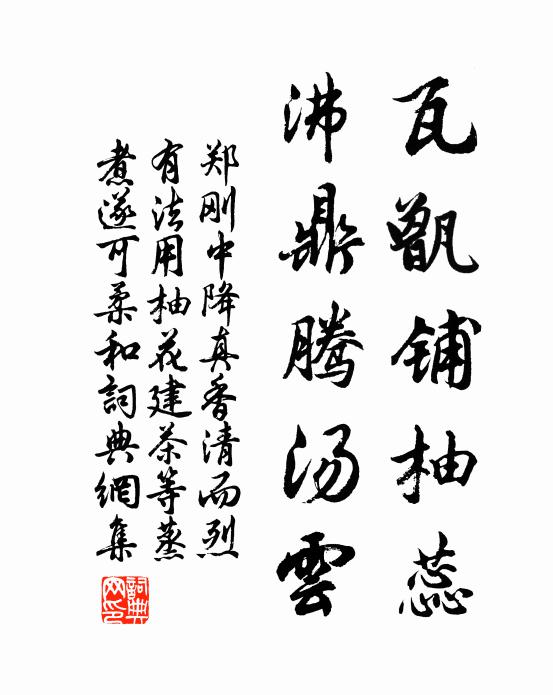 瓦甑铺柚蕊
沸鼎腾汤雲
郑刚中降真香清而烈
有法用柚花建茶等蒸
煮遂可柔和詞典網集
詞典
网印